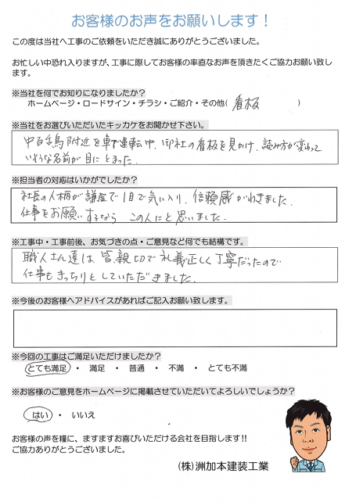 お客様のお声をお願いします！
この度は当社へ工事のご依頼をいただき誠にありがとうございました。
お忙しい中恐れ入りますが、工事に際してお客様の率直なお声を頂きたくご協力お願い致します。
※当社を何でお知りになりましたか？
ホームページ・ロードサイン・チラシ・ご紹介・その他( 看板 )
※当社をお選びいただいたキッカケをお聞かせ下さい。
中百舌鳥附近を車で運転中、御社の看板を見かけ、読み方が変わって
いそうな名前が目にとまった
※担当者の対応はいかがでしたか？
社長の人柄が謙虚で1目で気に入り、信頼感がわきました。
仕事をお願いするなら この人にと思いました。
※工事中・工事前後、お気づきの点・ご意見など何でも結構です。
職人さん達は皆親切で礼義正しく丁寧だったので
仕事もきっちりとしていただきました。
※今後のお客様へアドバイスがあればご記入お願い致します。
※今回の工事はご満足いただけましたか？
とても満足 ・ 満足 ・ 普通 ・ 不満 ・ とても不満
※お客様のご意見をホームページに掲載させていただいてよろしいでしょうか？
はい ・ いいえ
お客様の声を糧に、ますますお喜びいただける会社を目指します!!
ご協力ありがとうございました。
(株)洲加本建装工業